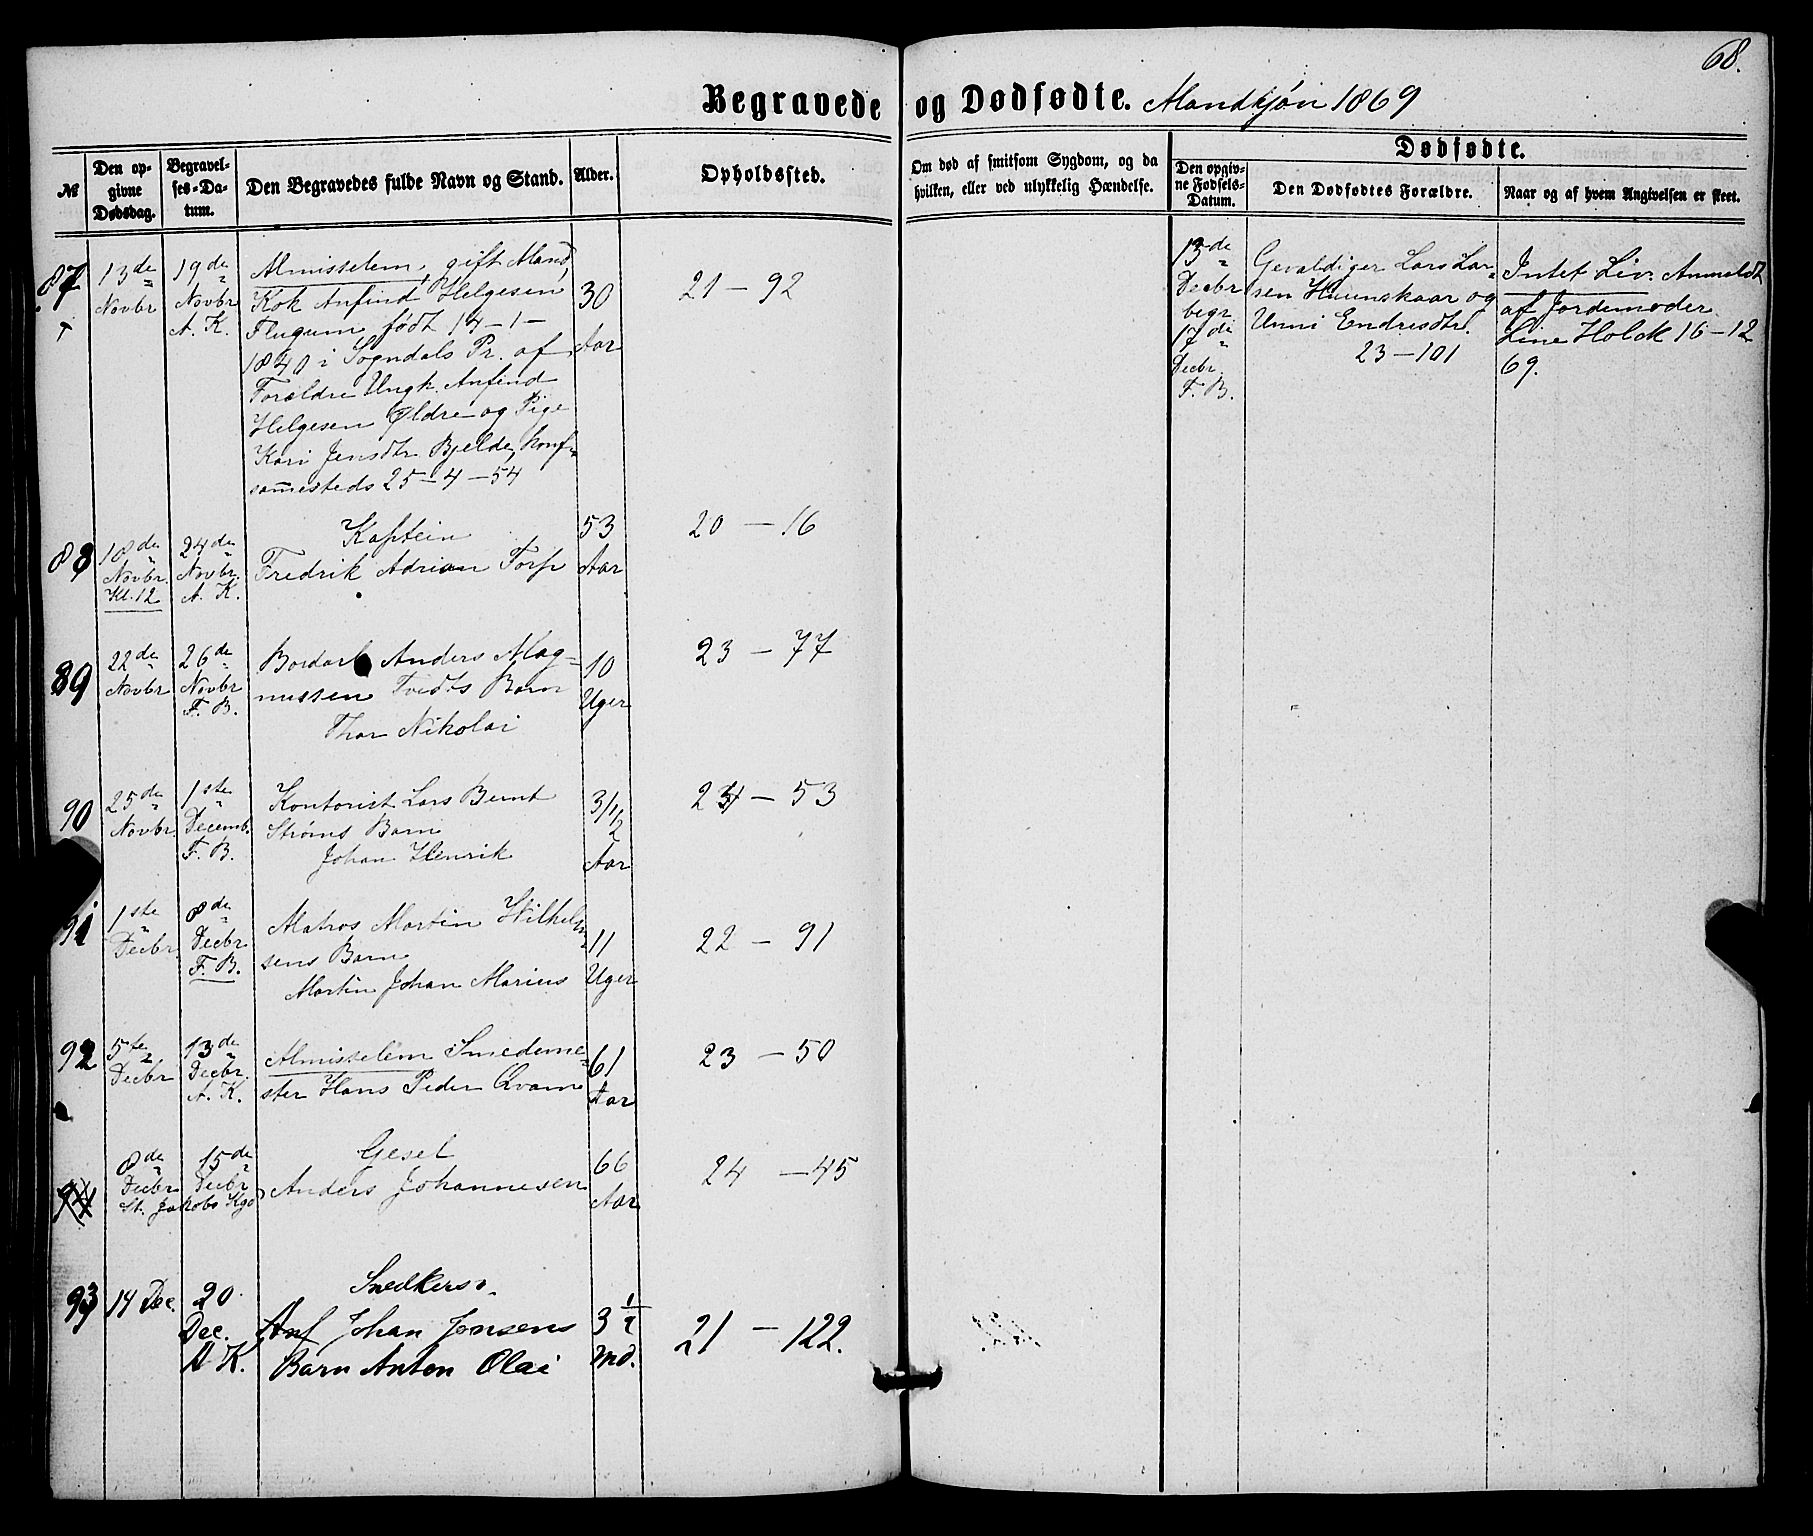 68.
Begravede og Dødfødte. Mandkjøn 1869
№
Den opgivne Dødsdag.
Begravelses-Datum.
Den Begravedes fulde Navn og Stand.
Alder.
Opholdssted.
Om død af smitsom Sygdom, og da hvilken, eller ved ulykkelig Hændelse.
Dødfødte.
Den opgivne Fødsels-Datum.
Den Dødfødtes Forældre.
Naar og af hvem Angivelsen er skeet.
87
13de Novbr
19de Novbr A. K.
Almisselem, gift Mand,
Kok Anfind Helgesen
Flugum født 14-1-
1840 i Sogndals Pr. af
Forældre Ungk. Anfind
Helgesen Øldre og Pige
Kari Jensdtr Bjelde, konf.
sammesteds 25-4-54
30 Aar
21 - 92
13de Decbr begr. 17de Decbr. F. B.
Gevaldiger Lars Lar-
sen Huunskaar og
Unni Endresdtr.
23-101
Intet Liv. Anmeldt
af Jordemoder
Line Holck 16-12
69.
88
18de Novbr. Kl. 12
24de Novbr. A. K.
Kaptein
Fredrik Adrian Torp
53 Aar
20 - 16
89
22de Novbr
26de Novbr F. B.
Bordarb Anders Mag-
nussen Tvedts Barn
Thor Nikolai
10 Uger
23 - 77
90
25de Novbr.
1ste Decemb. F. B.
Kontorist Lars Bernt
Strøms Barn
Johan Henrik
3 1/2 Aar
- 53
91
1ste Decbr.
8de Decbr. F. B.
Matros Martin Wilhelm-
sens Barn
Martin Johan Marius
11 Uger
22 - 91
92
5te Decbr
13de Decbr. A. K.
Almisselem Smedeme-
ster Hans Peder Qvamme
61 Aar
23 - 50
8de Decbr
15de Decbr
St. Jakobs Kgd
Gesel
Anders Johannesen
66 Aar
24 - 45
93
14 Dec.
20. Dec. A K.
Snedkersv.
Anf Johan Jensens
Barn Anton Olai
3 1/2 Md.
21 - 122.